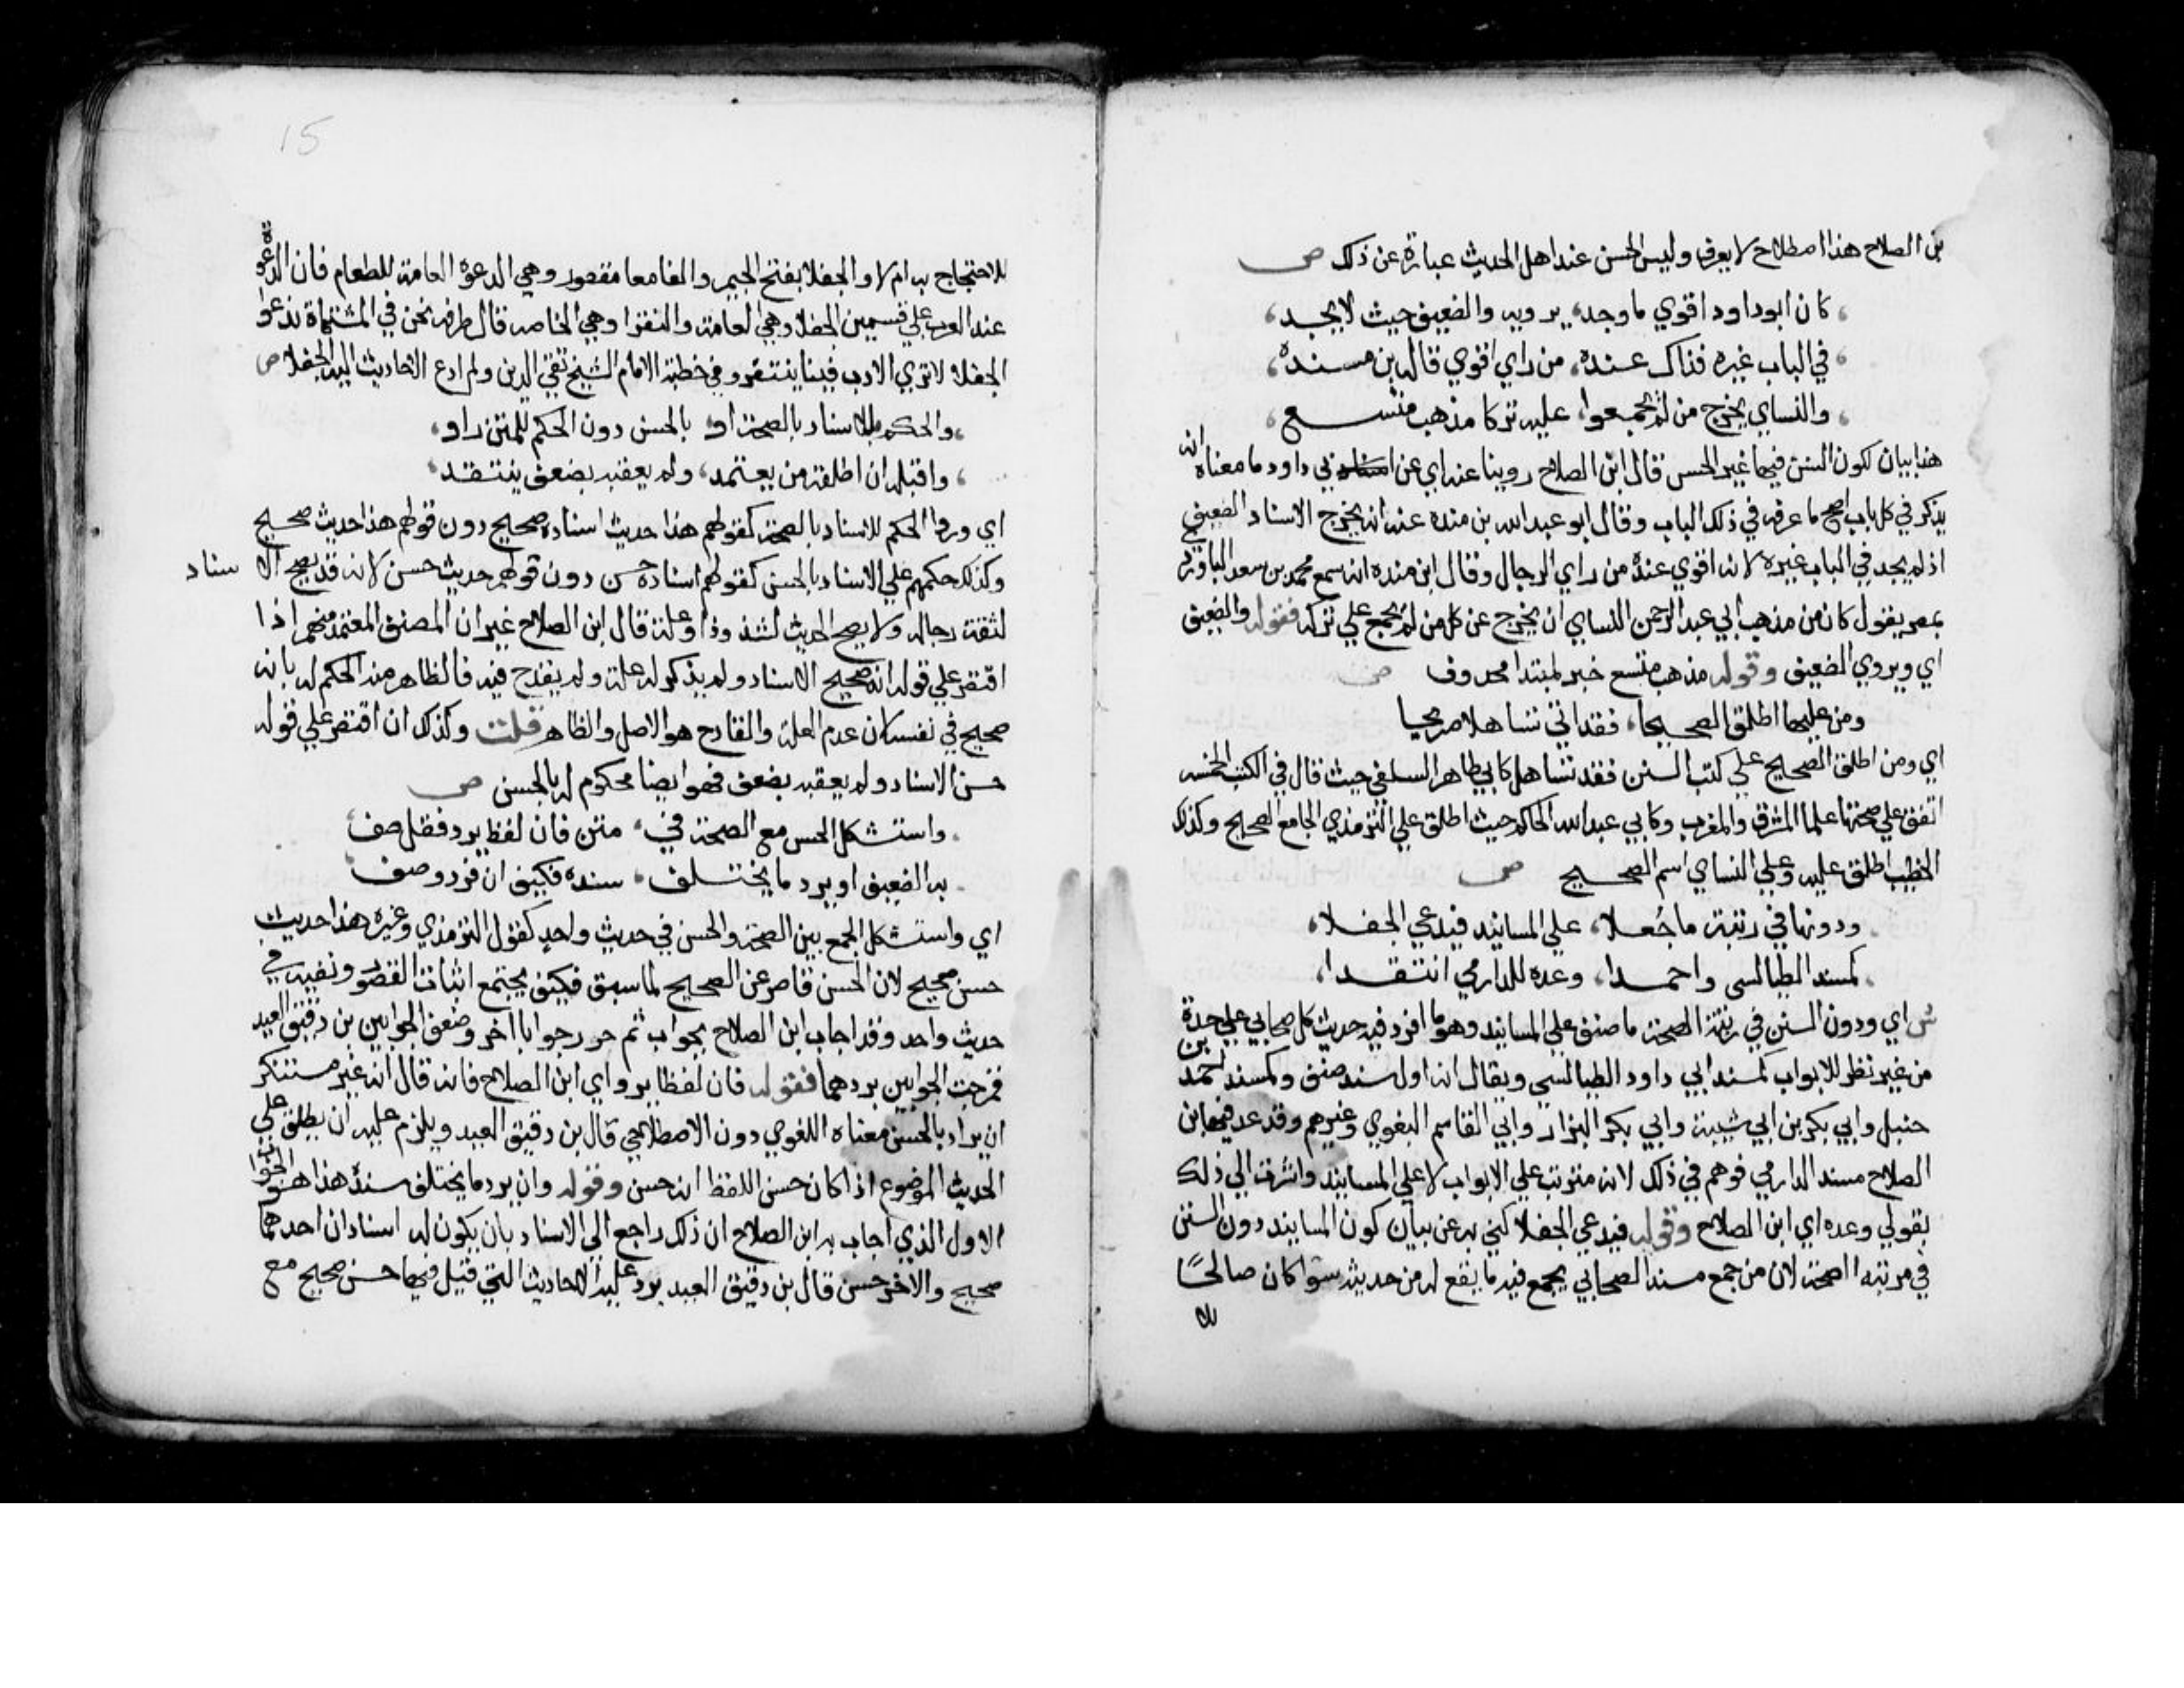 بن الصلاح هذا اصطلاح لا يعرف وليس الحسن عند اهل الحديث عبارة عن ذلك ص
كان ابوداود اقوي ما وجد، يرويه والضعيف حيث لا يجد،
في الباب غيره فذاك عنده، من راي اقوي قاله بن مسنده،
والنساي يخرج من لم يجمعوا، عليه تركا مذهب متسع،
هذا بيان كون السنن فيها غير الحسن قال ابن الصلاح روينا عنه اي عن ابي داود ما معناه انه
يذكر في كل باب اصح ما عرفه في ذلك الباب وقال ابو عبد الله بن منده عنه انه يخرج الاسناد الضعيف
اذ لم يجد في الباب غيره لانه اقوي عنده من راي الرجال وقال ابن منده انه سمع محمد بن سعد الباوردي
بمصر يقول كان من مذهب ابي عبد الرحمن النساي ان يخرج عن كل من لم يجمع علي تركه فقوله والضعيف
اي ويروي الضعيف وقوله مذهب متسع خبر لمبتدا محذوف ص
ومن عليها اطلق الصحيحا، فقد اتي تساهلا صريحا
اي ومن اطلق الصحيح علي كتب السنن فقد تساهل كابي طاهر السلفي حيث قال في الكتب الخمسه
اتفق علي صحتها علما المشرق والمغرب وكابي عبد الله الحاكم حيث اطلق علي الترمذي الجامع الصحيح وكذلك
الخطيب اطلق عليه وعلي النساي اسم الصحيح ص
ودونها في رتبة ما جُعلا، علي المسانيد فيدعي الجفلا،
كمسند الطيالسي واحمدا، وعده للدارمي انتقدا،
ش اي ودون السنن في رتبة الصحة ما صنف علي المسانيد وهو ما افرد فيه حديث كل صحابي علي حدة
من غير نظر للابواب كمسند ابي داود الطيالسي ويقال انه اول مسند صنف وكمسند احمد بن
حنبل وابي بكر بن ابي شيبة وابي بكر البزار وابي القاسم البغوي وغيرهم وقد عد فيها ابن
الصلاح مسند الدارمي فوهم في ذلك لانه مترتب علي الابواب لا علي المسانيد واشرت الي ذلك
بقولي وعده اي ابن الصلاح وقوله فيدعي الجفلا كني به عن بيان كون المسانيد دون السنن
في مرتبه الصحة لان من جمع مسند الصحابي يجمع فيه ما يقع له من حديثه سوا كان صالحًا
للا
15
للاحتجاج به ام لا والجفلا بفتح الجيم والفا معا مقصور وهي الدعوة العامة للطعام فان الدعوة
عند العرب علي قسمين الجفلا وهي العامة والنقرا وهي الخاصه قال طرفه نحن في المشتاة ندعوا
الجفلا لا تري الادب فينا ينتقر وفي خطبة الامام الشيخ تقي الدين ولم ادع الاحاديث اليه الجفلا ص
، والحكم للاسناد بالصحة او، بالحسن دون الحكم للمتن راو،
، واقبله ان اطلقه من يعتمد، ولم يعقبه بضعف ينتقد،
اي وراوا الحكم للاسناد بالصحة كقولهم هذا حديث اسناده صحيح دون قولهم هذا حديث صحيح
وكذلك حكمهم علي الاسناد بالحسن كقولهم اسناده حسن دون قولهم حديث حسن لانه قد يصح الاسناد
لثقة رجاله ولا يصح الحديث لشذوذ او علة قال ابن الصلاح غير ان المصنف المعتمد منهم اذا
اقتصر علي قوله انه صحيح الاسناد ولم يذكر له علة ولم يقدح فيه فالظاهر منه الحكم له بانه
صحيح في نفسه لان عدم العلة والقادح هو الاصل والظاهر قلت وكذلك ان اقتصر علي قوله
حسن الاسناد ولم يعقبه بضعف فهو ايضا محكوم له بالحسن ص
، واستشكل الحسن مع الصحة في، متن فان لفظ يرد فقل صف،
، به الضعيف او يرد ما يختلف، سنده فكيف ان فرد وصف،
اي واستشكل الجمع بين الصحة والحسن في حديث واحد كقول الترمذي وغيره هذا حديث
حسن صحيح لان الحسن قاصر عن الصحيح لما سبق فكيف يجتمع اثبات القصور ونفيه في
حديث واحد وقد اجاب ابن الصلاح بجواب ثم حرر جوابا اخر وضعف الجوابين بن دقيق العيد
فمزجت الجوابين بردهما فقوله فان لفظا يرد اي ابن الصلاح فانه قال انه غير مستنكر
ان يراد بالحسن معناه اللغوي دون الاصطلاحي قال بن دقيق العيد ويلزم عليه ان يطلق علي
الحديث الموضوع اذا كان حسن اللفظ انه حسن وقوله وان يرد ما يختلف سنده هذا هو الجواب
الاول الذي اجاب به ابن الصلاح ان ذلك راجع الي الاسناد بان يكون له اسنادان احدهما
صحيح والاخر حسن قال بن دقيق العيد يرد عليه الاحاديث التي قيل فيها حسن صحيح مع